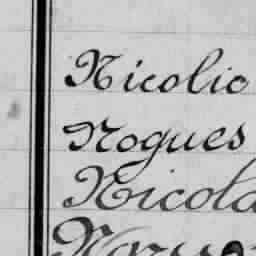 Nicolic
Nogues
Nicola